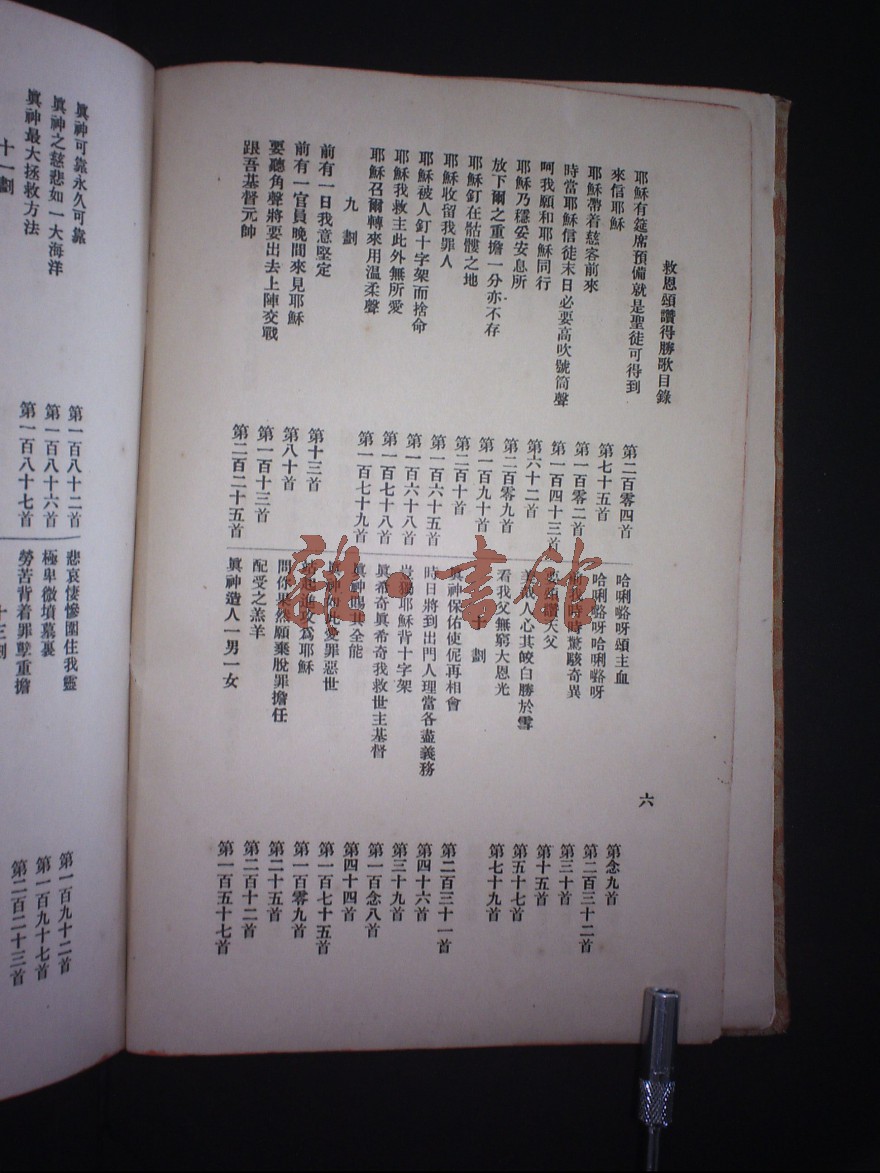 救恩頌讚得勝歌目錄
六
耶穌有筵席預備就是聖徒可得到 第二百零四首
來信耶穌 第七十五首
耶穌帶着慈容前來 第一百零二首
時當耶穌信徒末日必要高吹號筒聲 第一百四十三首
呵我願和耶穌同行 第六十二首
耶穌乃穩妥安息所 第二百零九首
放下爾之重擔一分亦不存 第一百九十首
耶穌釘在骷髏之地 第二百十首
耶穌收留我罪人 第一百六十五首
耶穌被人釘十字架而捨命 第一百六十八首
耶穌我救主此外無所愛 第一百七十八首
耶穌召爾轉來用溫柔聲 第一百七十九首
九劃
前有一日我意堅定 第十三首
前有一官員晚間來見耶穌 第八十首
要聽角聲將要出去上陣交戰 第一百十三首
跟吾基督元帥 第二百二十五首
哈唎嚕呀頌主血 第念九首
哈唎嚕呀哈唎嚕呀 第二百三十二首
我時時驚駭奇異 第三十首
頌讚天父 第十五首
人心其皎白勝於雪 第五十七首
看我父無窮大恩光 第七十九首
十劃
眞神保佑使伲再相會 第二百三十一首
時日將到出門人理當各盡義務 第四十六首
豈獨耶穌背十字架 第三十九首
眞希奇眞希奇我救世主基督 第一百念八首
眞神賜其全能 第四十四首
眞神如此愛罪惡世 第一百七十五首
站起進攻爲耶穌 第一百零九首
問你果然願棄脫罪擔任 第二十五首
配受之羔羊 第二百十二首
眞神造人一男一女 第一百五十七首
眞神可靠永久可靠 第一百八十二首
眞神之慈悲如一大海洋 第一百八十六首
眞神最大拯救方法 第一百八十七首
十一劃
悲哀悽慘圍住我靈 第一百九十二首
極卑微墳墓裏 第一百九十七首
勞苦背着罪孽重擔 第二百二十三首
十二劃
雜·書館